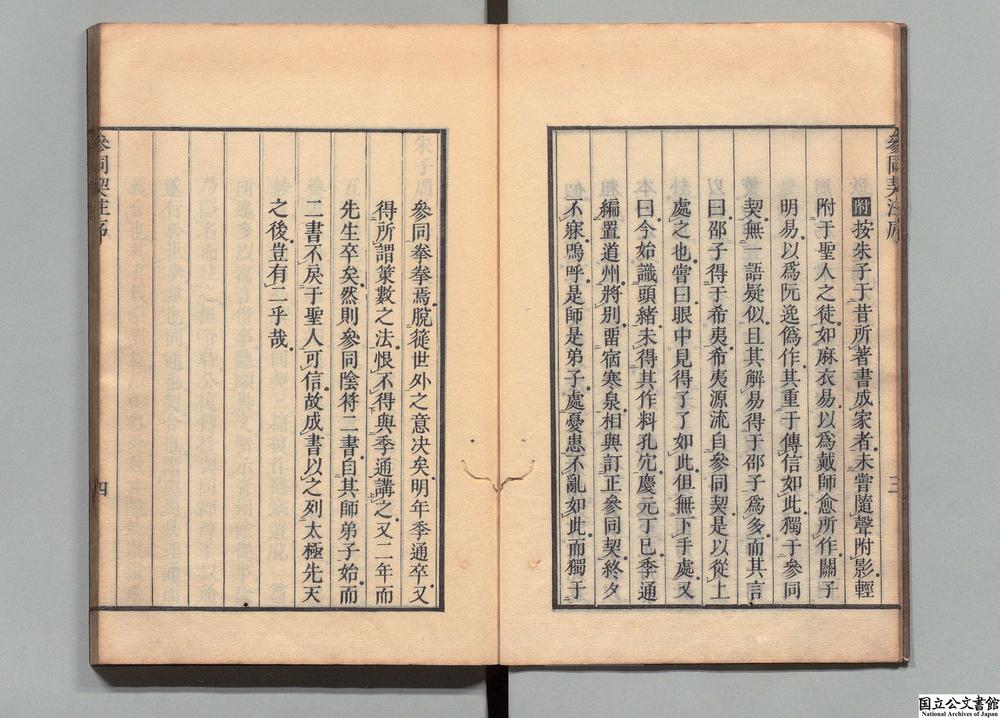 參同契註序
附按朱子于昔所著書成家者未嘗隨聲附影輕
附于聖人之徒如麻衣易以爲戴師愈所作關子
明易以爲阮逸僞作其重于傳信如此獨于參同
契無一語疑似且其解易得于邵子爲多而其言
曰邵子得于希夷希夷源流自參同契是以從上
處之也嘗曰眼中見得了了如此但無下手處又
曰今始識頭緒未得其作料孔穴慶元丁巳季通
編置道州將别畱宿寒泉相與訂正參同契終夕
不寐嗚呼是師是弟子處憂患不亂如此而獨于
三
參同拳拳焉脫蓰世外之意决矣明年季通卒又
得所謂策數之法恨不得與季通講之又二年而
先生卒矣然則參同陰符二書自其師弟子始而
二書不戾于聖人可信故成書以之列太極先天
之後豈有二乎哉
參同契註序
四
国立公文書館
National Archives of Japan